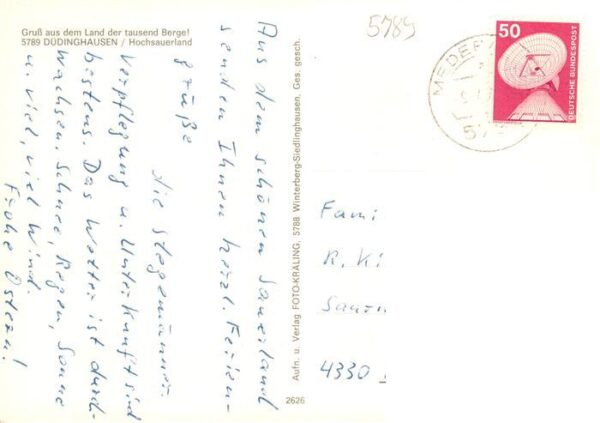 Gruß aus dem Land der tausend Berge!
5789 DÜDINGHAUSEN / Hochsauerland
Aus dem schönen Sauerland
senden Ihnen herzl. Ferien-
grüße
die Stegemänner.
Verpflegung u. Unterkunft sind
bestens. Das Wetter ist durch-
wachsen. Schnee, Regen, Sonne
u. viel, viel Wind.
Frohe Ostern!
Aufn. u. Verlag FOTO-KRALING, 5788 Winterberg-Siedlinghausen. Ges. gesch.
2626
5789
50
DEUTSCHE BUNDESPOST
MEDEB
57
Fami
R. Ki
4330